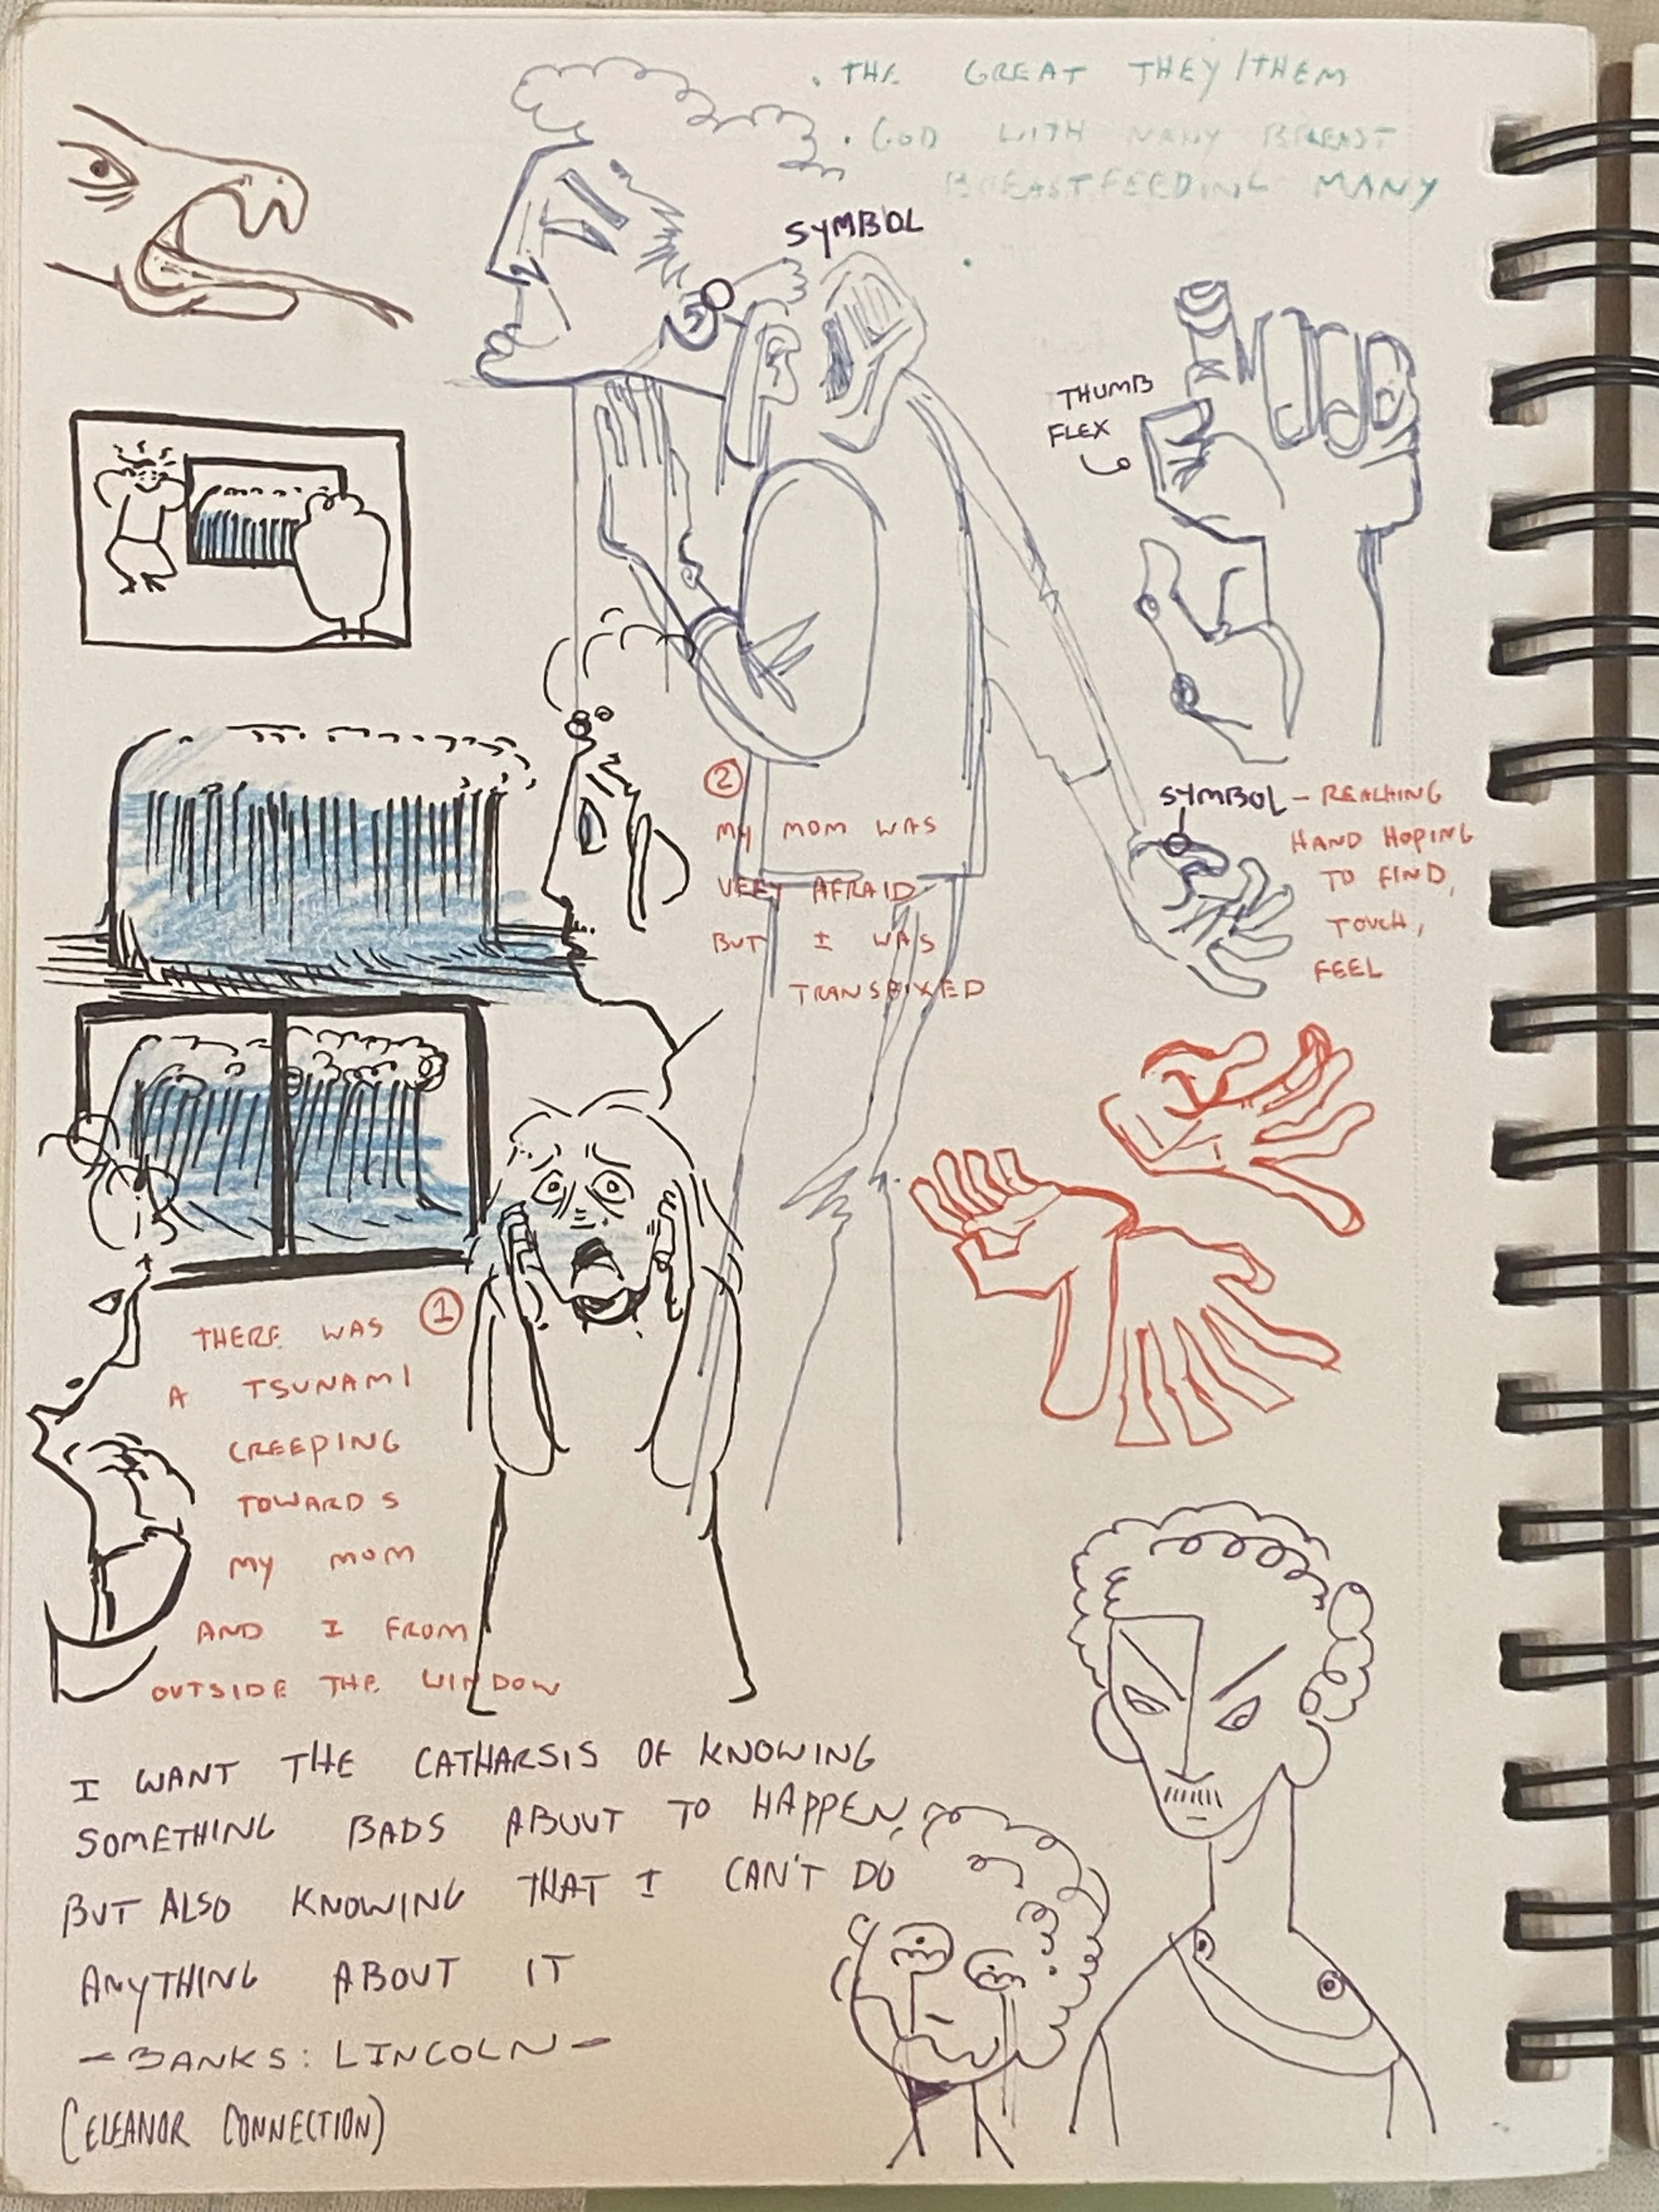 . THE GREAT THEY/THEM
. GOD WITH MANY BREAST
BREASTFEEDING MANY
SYMBOL
THUMB
FLEX
SYMBOL – REACHING
HAND HOPING
TO FIND,
TOUCH,
FEEL
2
MY MOM WAS
VERY AFRAID
BUT I WAS
TRANSFIXED
1
THERE WAS
A TSUNAMI
CREEPING
TOWARDS
MY MOM
AND I FROM
OUTSIDE THE WINDOW
I WANT THE CATHARSIS OF KNOWING
SOMETHING BADS ABOUT TO HAPPEN,
BUT ALSO KNOWING THAT I CAN'T DO
ANYTHING ABOUT IT
– BANKS: LINCOLN –
(ELEANOR CONNECTION)